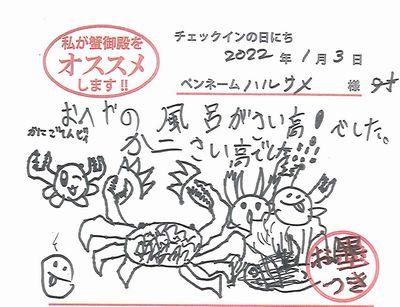 私が蟹御殿を
オススメ
します!!
チェックインの日にち
2022年1月3日
ペンネーム ハルサメ 様
おへやの風呂がさい高!でした。
カニさい高でした!!
お墨
つき